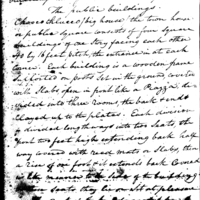 The public buildings.
Chacos thlucco/big house the town house
or public square consists of four square
buildings of one story facing each other
40 by 16 feet pitch, the entrance in at each
corner. Each building is a wooden frame
supported on posts set in the ground, covered
slabs open in front like a Piazza, di
vided into three rooms, the back & ends
clayed up to the plates. Each division
is divided lengthways into two seats the
front two feet high extending back half
way covered with reed mats or slabs, then
a rise of one foot & it extends back covered
in like manner to the side of the building
these seats they lie or sit at pleasure